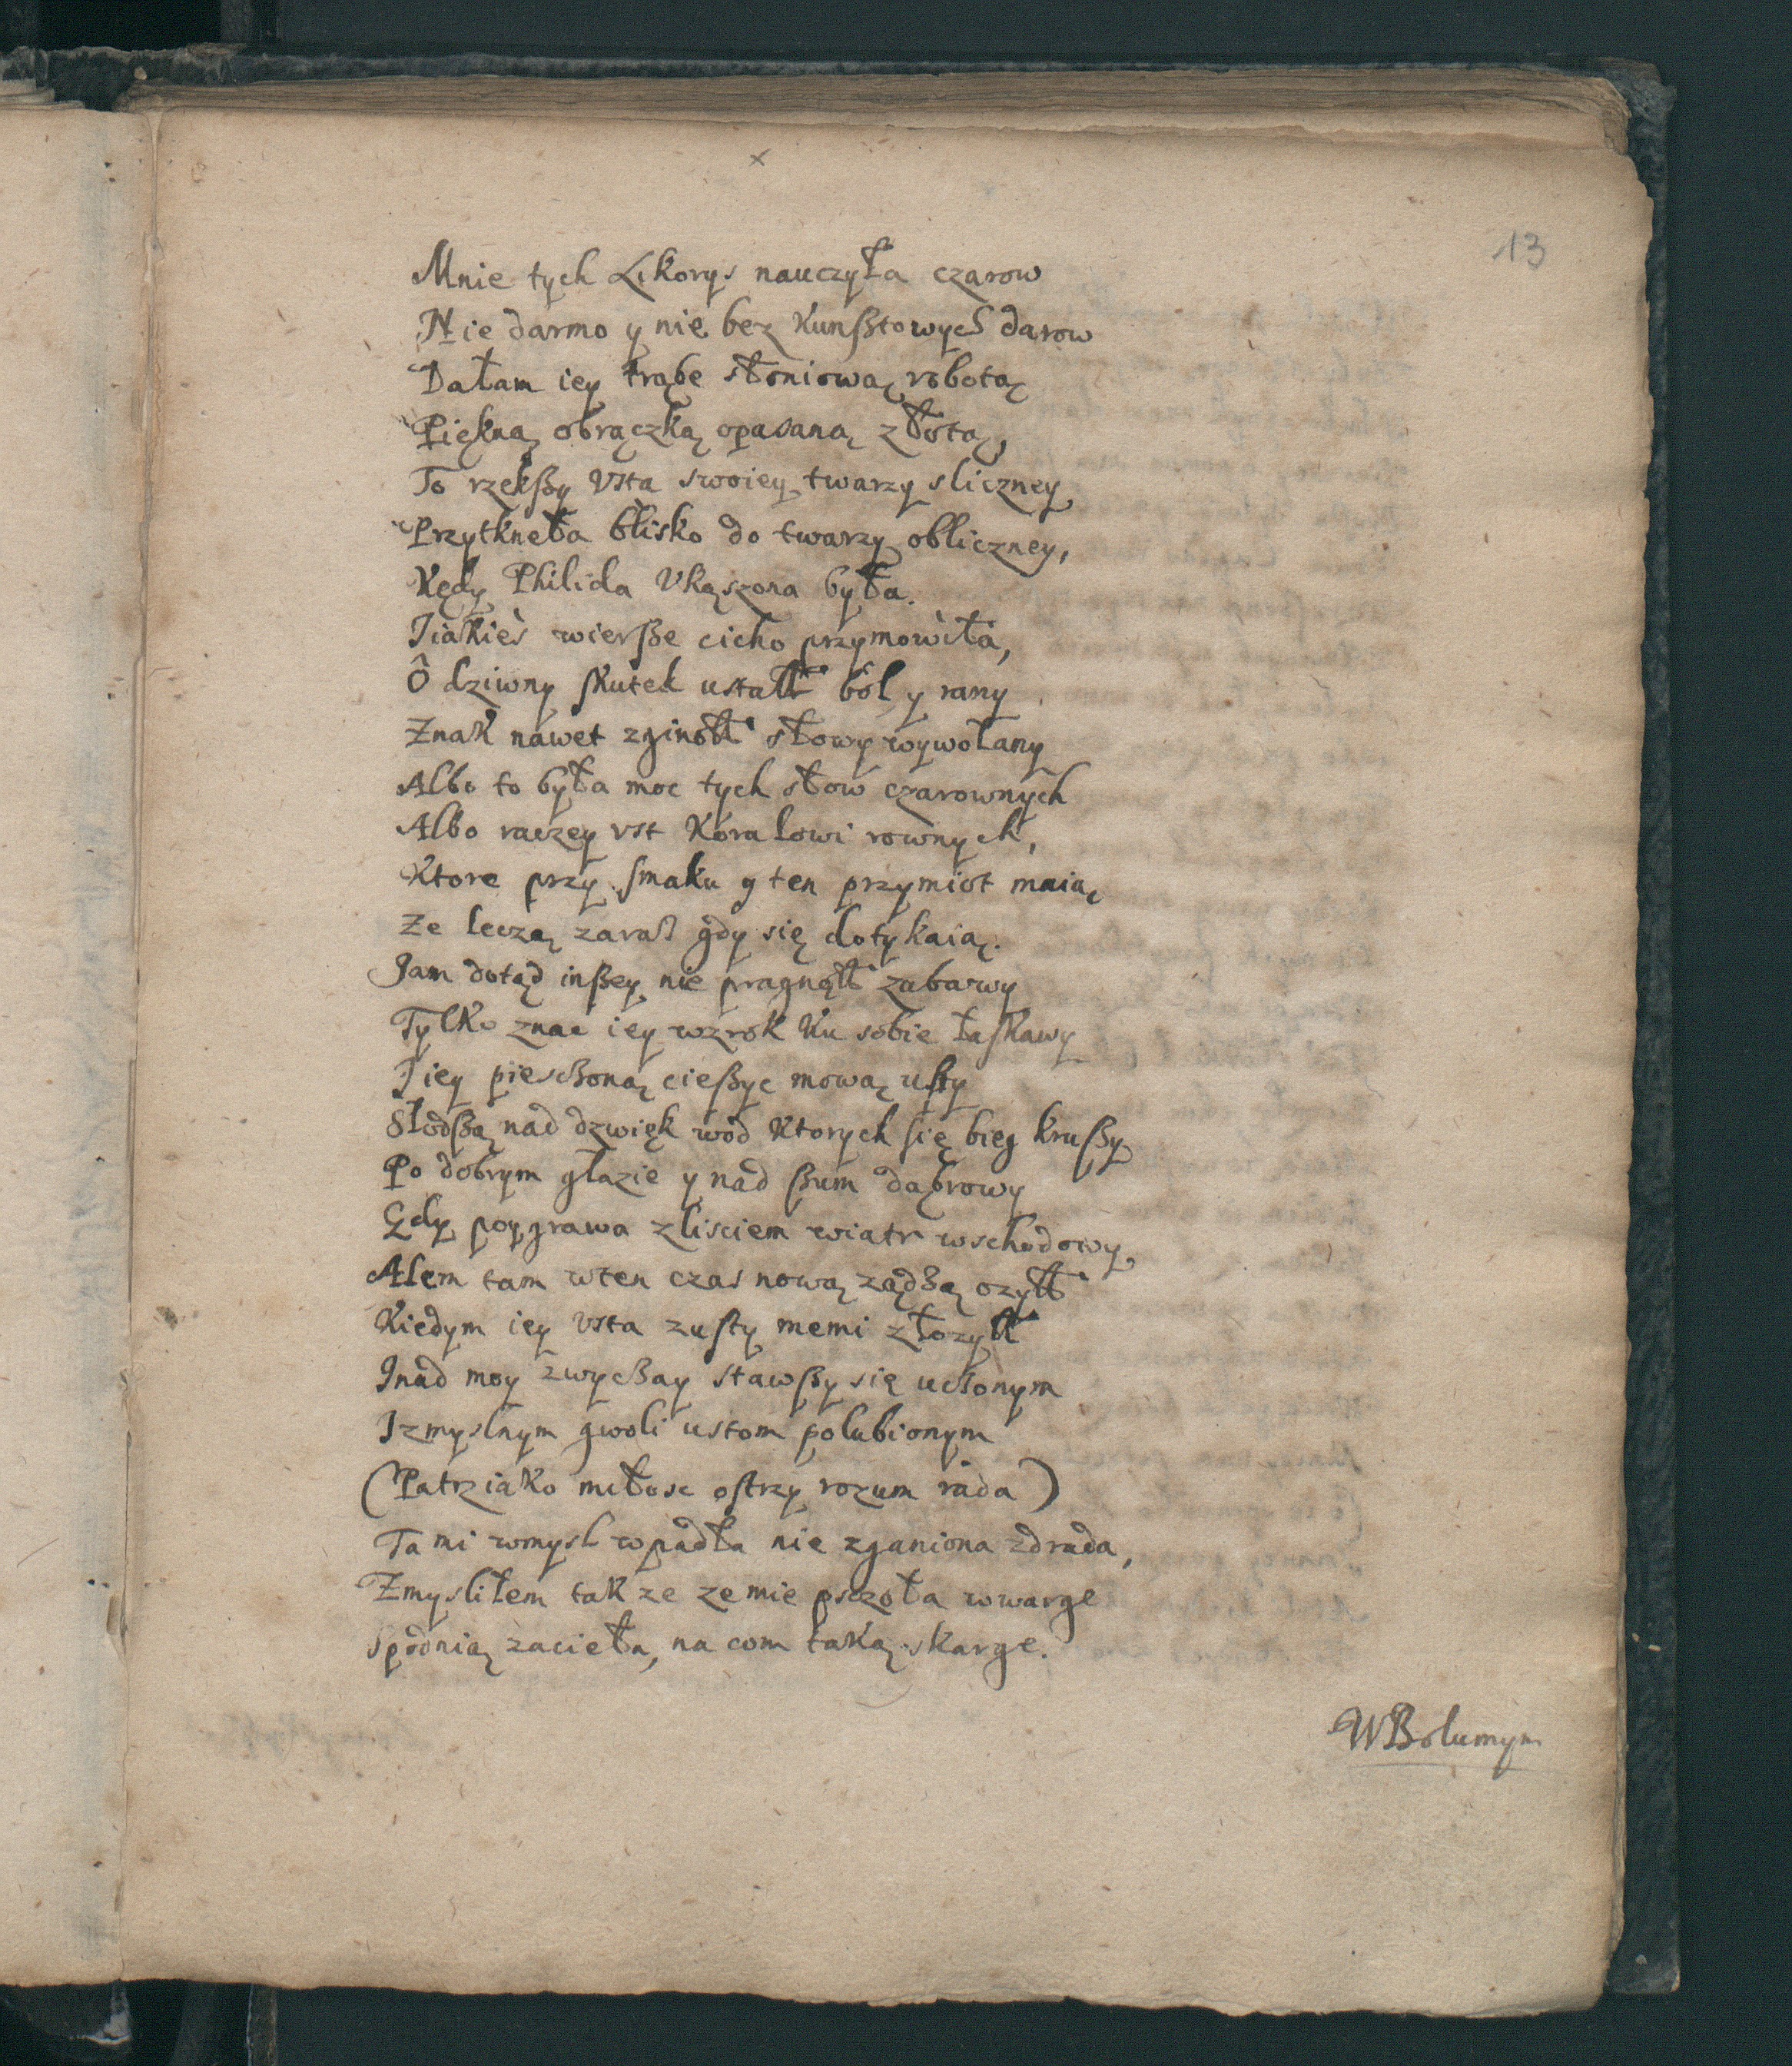 x
13
Mnie tych Likorys nauczyła czarow
Nie darmo y nie bez Kunßtowych darow
Dałam iey trąbe słoniową robotą
Piękną obrączką opasaną złotą,
To rzekßy Vsta swoiey twarzy sliczney
Przytkneła blisko do twarzy obliczney,
Kędy Philida Vkąszona była.
Iiakieś wierße cicho przymowiła,
Ô dziwny skutek ustałł ból y rany
Znak nawet zginołł słowy wywołany
Albo to była moc tych słow czarownych
Albo raczey vst Koralowi rownych,
Ktore przy smaku y ten przymiot maią
Ze leczą zaraß gdy się dotykaią.
Jam dotąd inßey nie pragnąłł zabawy
Tylko znac iey wzrok Ku sobie łaskawy
I iey piesczoną cießyc mową ußy
Słodßą nad dzwięk wod Ktorych się bieg krußy
Po dobrym głazie y nad ßum dąbrowy
Gdy poygrawa zlisciem wiatr wschodowy,
Alem tam wten czas nową ządzą ozyłł
Kiedym iey Vsta zusty memi złozyłł
Inad moy zwyczay stawßy się uczonym
Izmyslnym gwoli ustom polubionym
(Patrziako miłosc ostrzy rozum rada)
Ta mi wmysl wpadła nie zganiona zdrada,
Zmysliłem tak ze ze mie pszoła wwarge
Spodnią zacieła, na com taką skarge.
WBolumym